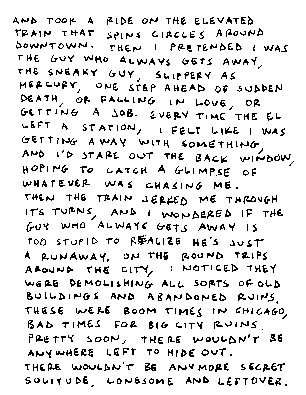 AND TOOK A RIDE ON THE ELEVATED
TRAIN THAT SPINS CIRCLES AROUND
DOWNTOWN. THEN I PRETENDED I WAS
THE GUY WHO ALWAYS GETS AWAY,
THE SNEAKY GUY, SLIPPERY AS
MERCURY, ONE STEP AHEAD OF SUDDEN
DEATH, OR FALLING IN LOVE, OR
GETTING A JOB. EVERY TIME THE EL
LEFT A STATION, I FELT LIKE I WAS
GETTING AWAY WITH SOMETHING,
AND I'D STARE OUT THE BACK WINDOW,
HOPING TO CATCH A GLIMPSE OF
WHATEVER WAS CHASING ME.
THEN THE TRAIN JERKED ME THROUGH
IT'S TURNS, AND I WONDERED IF THE
GUY WHO ALWAYS GETS AWAY IS
TOO STUPID TO REALIZE HE'S JUST
A RUNAWAY. ON THE ROUND TRIPS
AROUND THE CITY, I NOTICED THEY
WERE DEMOLISHING ALL SORTS OF OLD
BUILDINGS AND ABANDONED RUINS.
THESE WERE BOOM TIMES IN CHICAGO,
BAD TIMES FOR BIG CITY RUINS.
PRETTY SOON, THERE WOULDN'T BE
ANYWHERE LEFT TO HIDE OUT.
THERE WOULDN'T BE ANYMORE SECRET
SOLITUDE, LONESOME AND LEFTOVER.